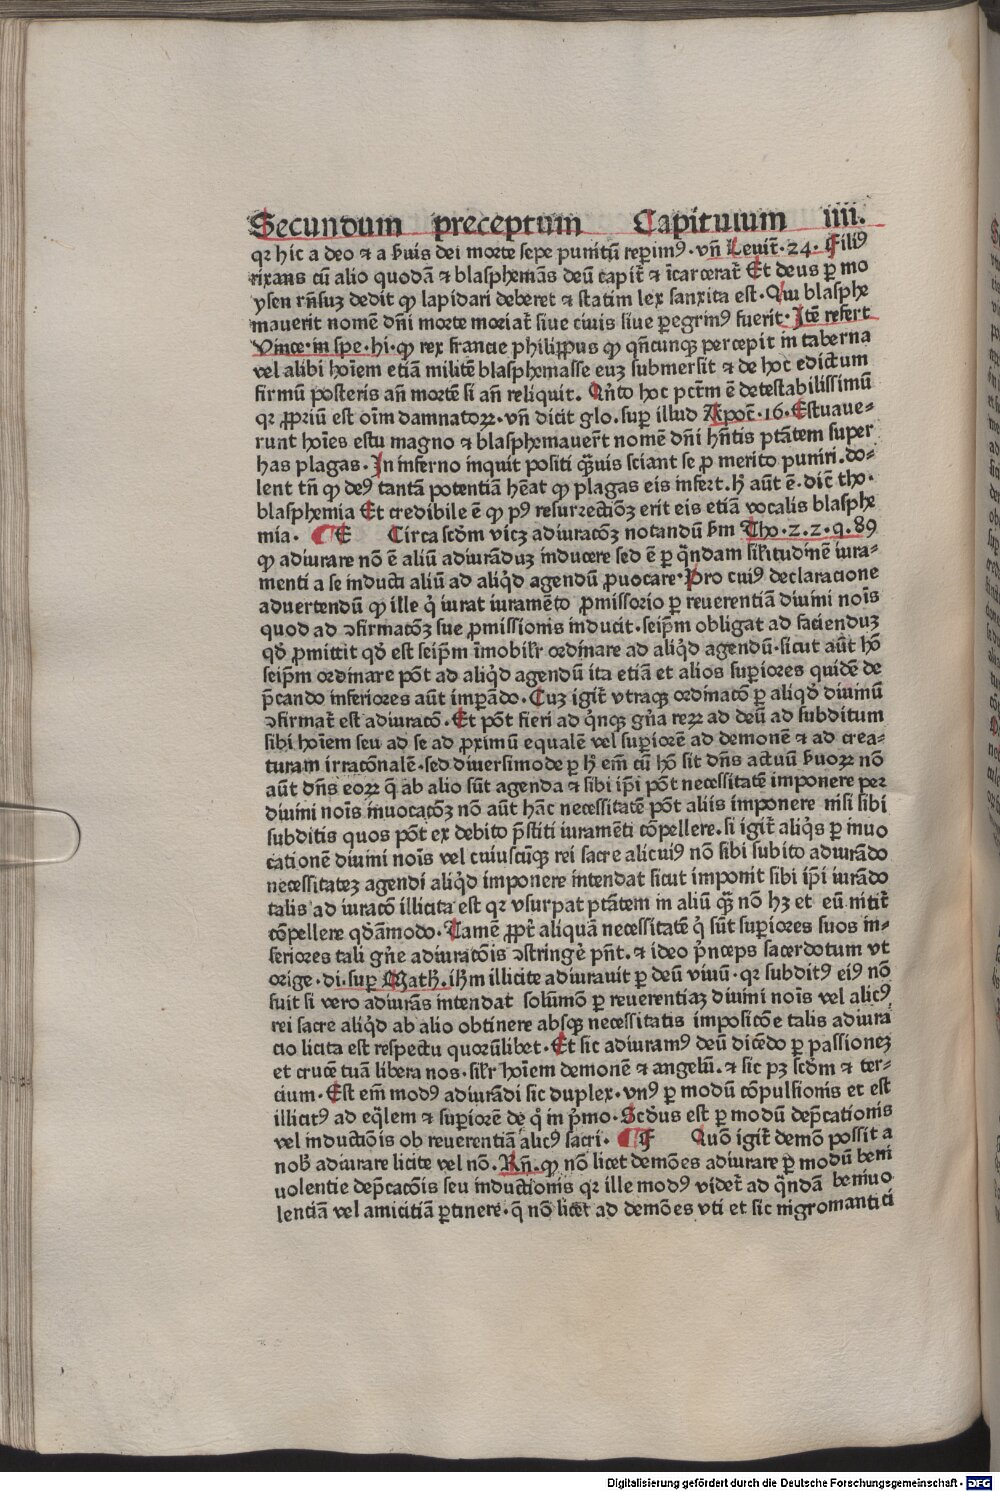 Secundum preceptum Capitulum iiii.
qr hic a deo ⁊ a ẜuis dei morte sepe punitū reperimꝰ. vñ Leuit̄. 24. Filiꝰ
rixans cū alio quodā ⁊ blasphemās deū capit̄ ⁊ īcarcerat̄ Et deus ꝑ mo
ysen rñsuꝫ dedit ꝙ lapidari deberet ⁊ statim lex sanxita est. Qui blasphe
mauerit nomē dñi morte moriat̄ siue ciuis siue ꝑegrinꝰ fuerit. Itē refert
Vince. in spe. hi. ꝙ rex francie philippus ꝙ qñcunqꝫ percepit in taberna
vel alibi hoīem etiā militē blasphemasse euꝫ submersit ⁊ de hoc edictum
firmū posteris añ mortē si añ reliquit. Qn̄to hoc pctm̄ ē detestabilissimū
qr ꝓpriū est oīm damnatoꝝ. vñ dicit glo. suꝑ illud Apoc̄. 16. Estuaue-
runt hoīes estu magno ⁊ blasphemauer̄t nomē dñi hñtis ptātem super
has plagas. In inferno inquit positi qꝫuis sciant se ꝓ merito puniri. do-
lent tñ ꝙ deꝰ tantā potentiā hēat ꝙ plagas eis infert. hͦ aūt ē. dic̄t tho.
blasphemia Et credibile ē ꝙ pꝰ resurrectiōꝫ erit eis etiā vocalis blasphe
mia. ¶ E Circa scd̄m vicꝫ adiuracōꝫ notandū ẜm Tho. 2. 2. q. 89
ꝙ adiurare nō ē aliū adiurāduꝫ inducere sed ē ꝑ qͣndam sil̄itudinē iura-
menti a se inducti aliū ad aliqͥd agendū ꝓuocare. Pro cuiꝰ declaracione
aduertendū ꝙ ille qͥ iurat iuramēto ꝓmissorio ꝑ reuerentiā diuini noīs
quod ad ꝯfirmatōꝫ sue ꝓmissionis inducit. seip̄m obligat ad faciendūꝫ
qd̄ ꝓmittit qd̄ est seip̄m īmobil̄r ordinare ad aliqͥd agendū. sicut aūt hō
seip̄m ordinare pōt ad aliqͥd agendū ita etiā et alios suꝑiores quidē de
p̄cando inferiores aūt imꝑādo. Cuꝫ igit̄ vtraqꝫ ordinatō ꝑ aliqͥd diuinū
ꝯfirmat̄ est adiuratō. Et pōt fieri ad qͥnqꝫ gn̄a reꝝ ad deū ad subditum
sibi hoīem seu ad se ad ꝓximū equalē vel suꝑiorē ad demonē ⁊ ad crea-
turam irracōnalē. sed diuersimode ꝑ hͦ em̄ cū hō sit dñs actuū ẜuoꝝ nō
aūt dñs eoꝝ q̄ ab alio sūt agenda ⁊ sibi ip̄i pōt necessitatē imponere per
diuini noīs inuocatōꝫ nō aūt hāc necessitatē pōt aliis imponere nisi sibi
subditis quos pōt ex debito p̄stiti iuramēti cōpellere. si igit̄ aliqͥs ꝑ inuo
cationē diuini noīs vel cuiuscūqꝫ rei sacre alicuiꝰ nō sibi subito adiurādo
necessitateꝫ agendi aliqͥd imponere intendat sicut imponit sibi ip̄i iurādo
talis ad iuracō illicita est qr vsurpat ptātem in aliū qꝫ nō hꝫ et eū nitit̄
cōpellere qd̄āmodo. Tamē ꝓpt̄ aliquā necessitatē qͥ sūt suꝑiores suos in-
feriores tali gn̄e adiuratōis ꝯstringē pn̄t. ⁊ ideo p̄nceps sacerdotum vt
orige. di. suꝑ Math̄. ih̄m illicite adiurauit ꝑ deū viuū. qr subditꝰ eiꝰ nō
fuit si vero adiurās intendat solūmō ꝑ reuerentiaꝫ diuini noīs vel alicꝰ
rei sacre aliqͥd ab alio obtinere absqꝫ necessitatis imposicōe talis adiura
cio licita est respectu quorūlibet. Et sic adiuramꝰ deū dicēdo ꝑ passioneꝫ
et crucē tuā libera nos. sil̄r hoīem demonē ⁊ angelū. ⁊ sic pꝫ scd̄m ⁊ ter-
cium. Est em̄ modꝰ adiurādi sic duplex. vnꝰ ꝑ modū cōpulsionis et est
illicitꝰ ad eq̄lem ⁊ suꝑiorē de qͥ in p̄mo. Scd̄us est ꝑ modū dep̄cationis
vel inductiōis ob reuerentiā alicꝰ sacri. ¶ F Quō igit̄ demō possit a
nob̄ adiurare licite vel nō. Rñ. ꝙ nō licet demōes adiurare ꝑ modū beni
uolentie dep̄cacōis seu inductionis qr ille modꝰ videt̄ ad qͣndā beniuo
lentiā vel amicitiā ꝑtinere. q̄ nō licet ad demōes vti et sic nigromantici
Digitalisierung gefördert durch die Deutsche Forschungsgemeinschaft - DFG